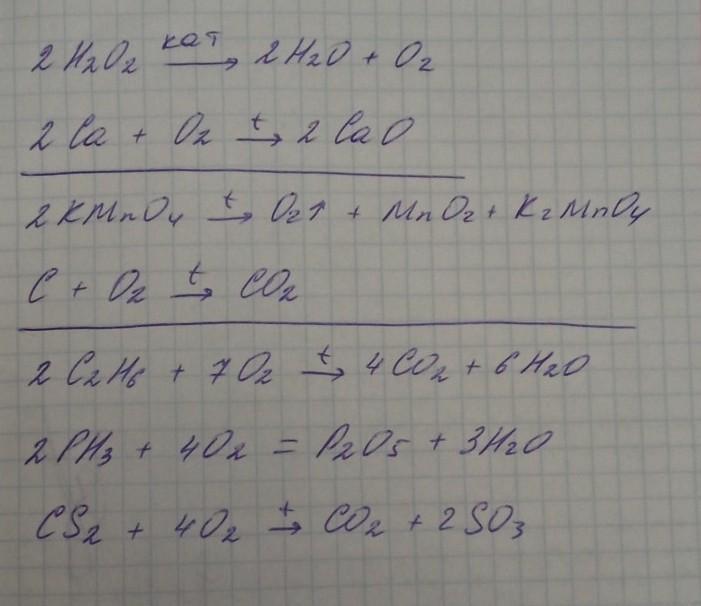 2 H₂O₂ кат → 2 H₂O + O₂
2 Ca + O₂ t → 2 CaO
2 KMnO₄ t → O₂↑ + MnO₂ + K₂MnO₄
C + O₂ t → CO₂
2 C₂H₆ + 7O₂ t → 4CO₂ + 6H₂O
2PH₃ + 4O₂ = P₂O₅ + 3H₂O
CS₂ + 4O₂ t → CO₂ + 2SO₃